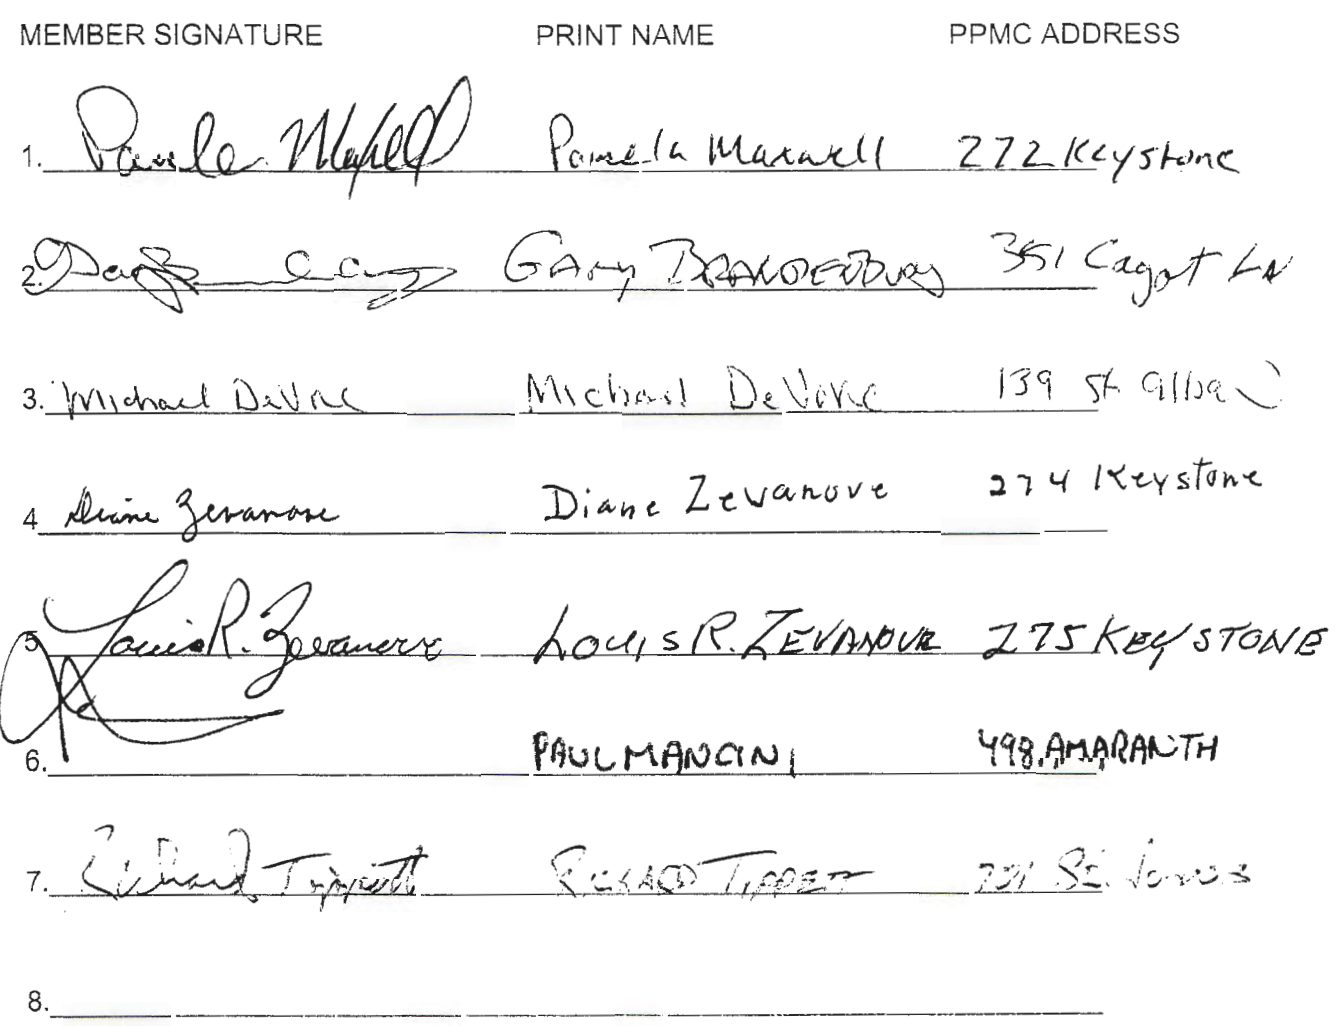 MEMBER SIGNATURE PRINT NAME PPMC ADDRESS
1. Pamela Maxwell Pamela Maxwell 272 Keystone
2. Gary Brandenburg 351 Cagot Ln
3. Michael DeVore Michael DeVore 139 St Alban
4 Diane Zevanove Diane Zevanove 274 Keystone
5 Louis R. Zevanove Louis R. Zevanove 275 KEYSTONE
6. PAUL MANCINI 498 AMARANTH
7. Richard Tippett Richard Tippett St. James
8.